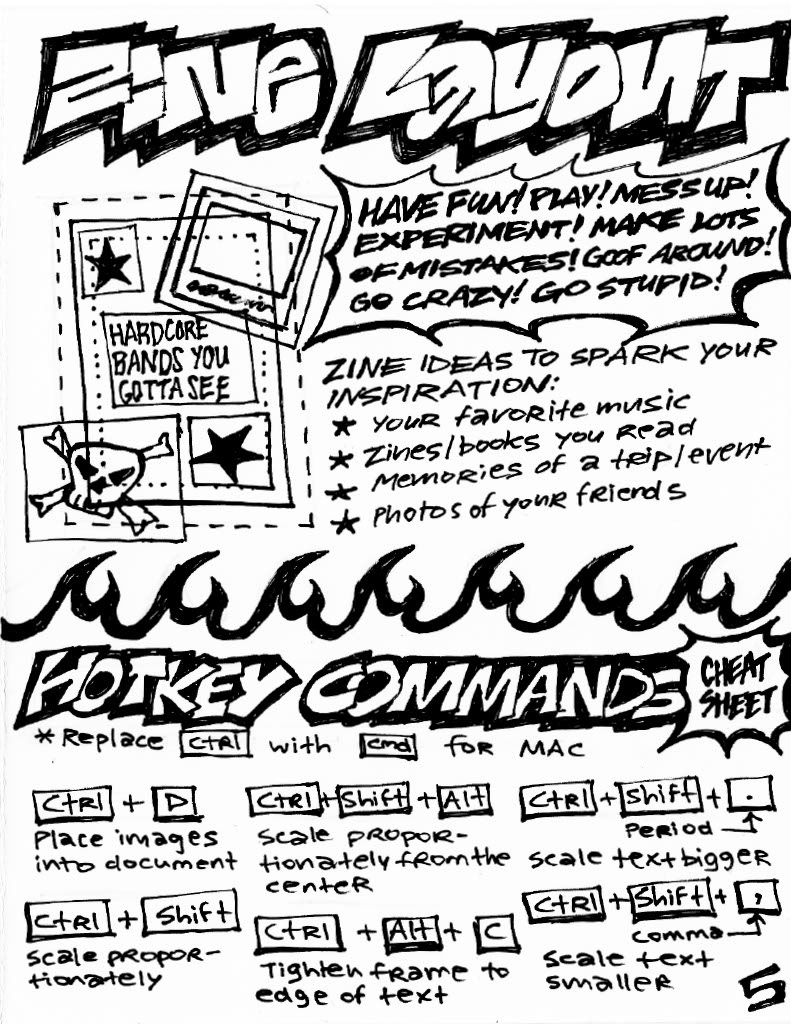 Zine Layout
HAVE FUN! PLAY! MESS UP!
EXPERIMENT! MAKE LOTS
OF MISTAKES! GOOF AROUND!
GO CRAZY! GO STUPID!
HARDCORE
BANDS YOU
GOTTA SEE
ZINE IDEAS TO SPARK YOUR
INSPIRATION:
★ your favorite music
★ Zines/books you read
★ Memories of a trip/event
★ Photos of your friends
HOTKEY COMMANDS
CHEAT
SHEET
*Replace Ctrl with cmd for MAC
Ctrl + D
Place images
into document
Ctrl + Shift + Alt
Scale propor-
tionately from the
center
Ctrl + Shift + .
Period
Scale text bigger
Ctrl + Shift
Scale propor-
tionately
Ctrl + Alt + C
Tighten frame to
edge of text
Ctrl + Shift + ,
comma
Scale text
smaller
5